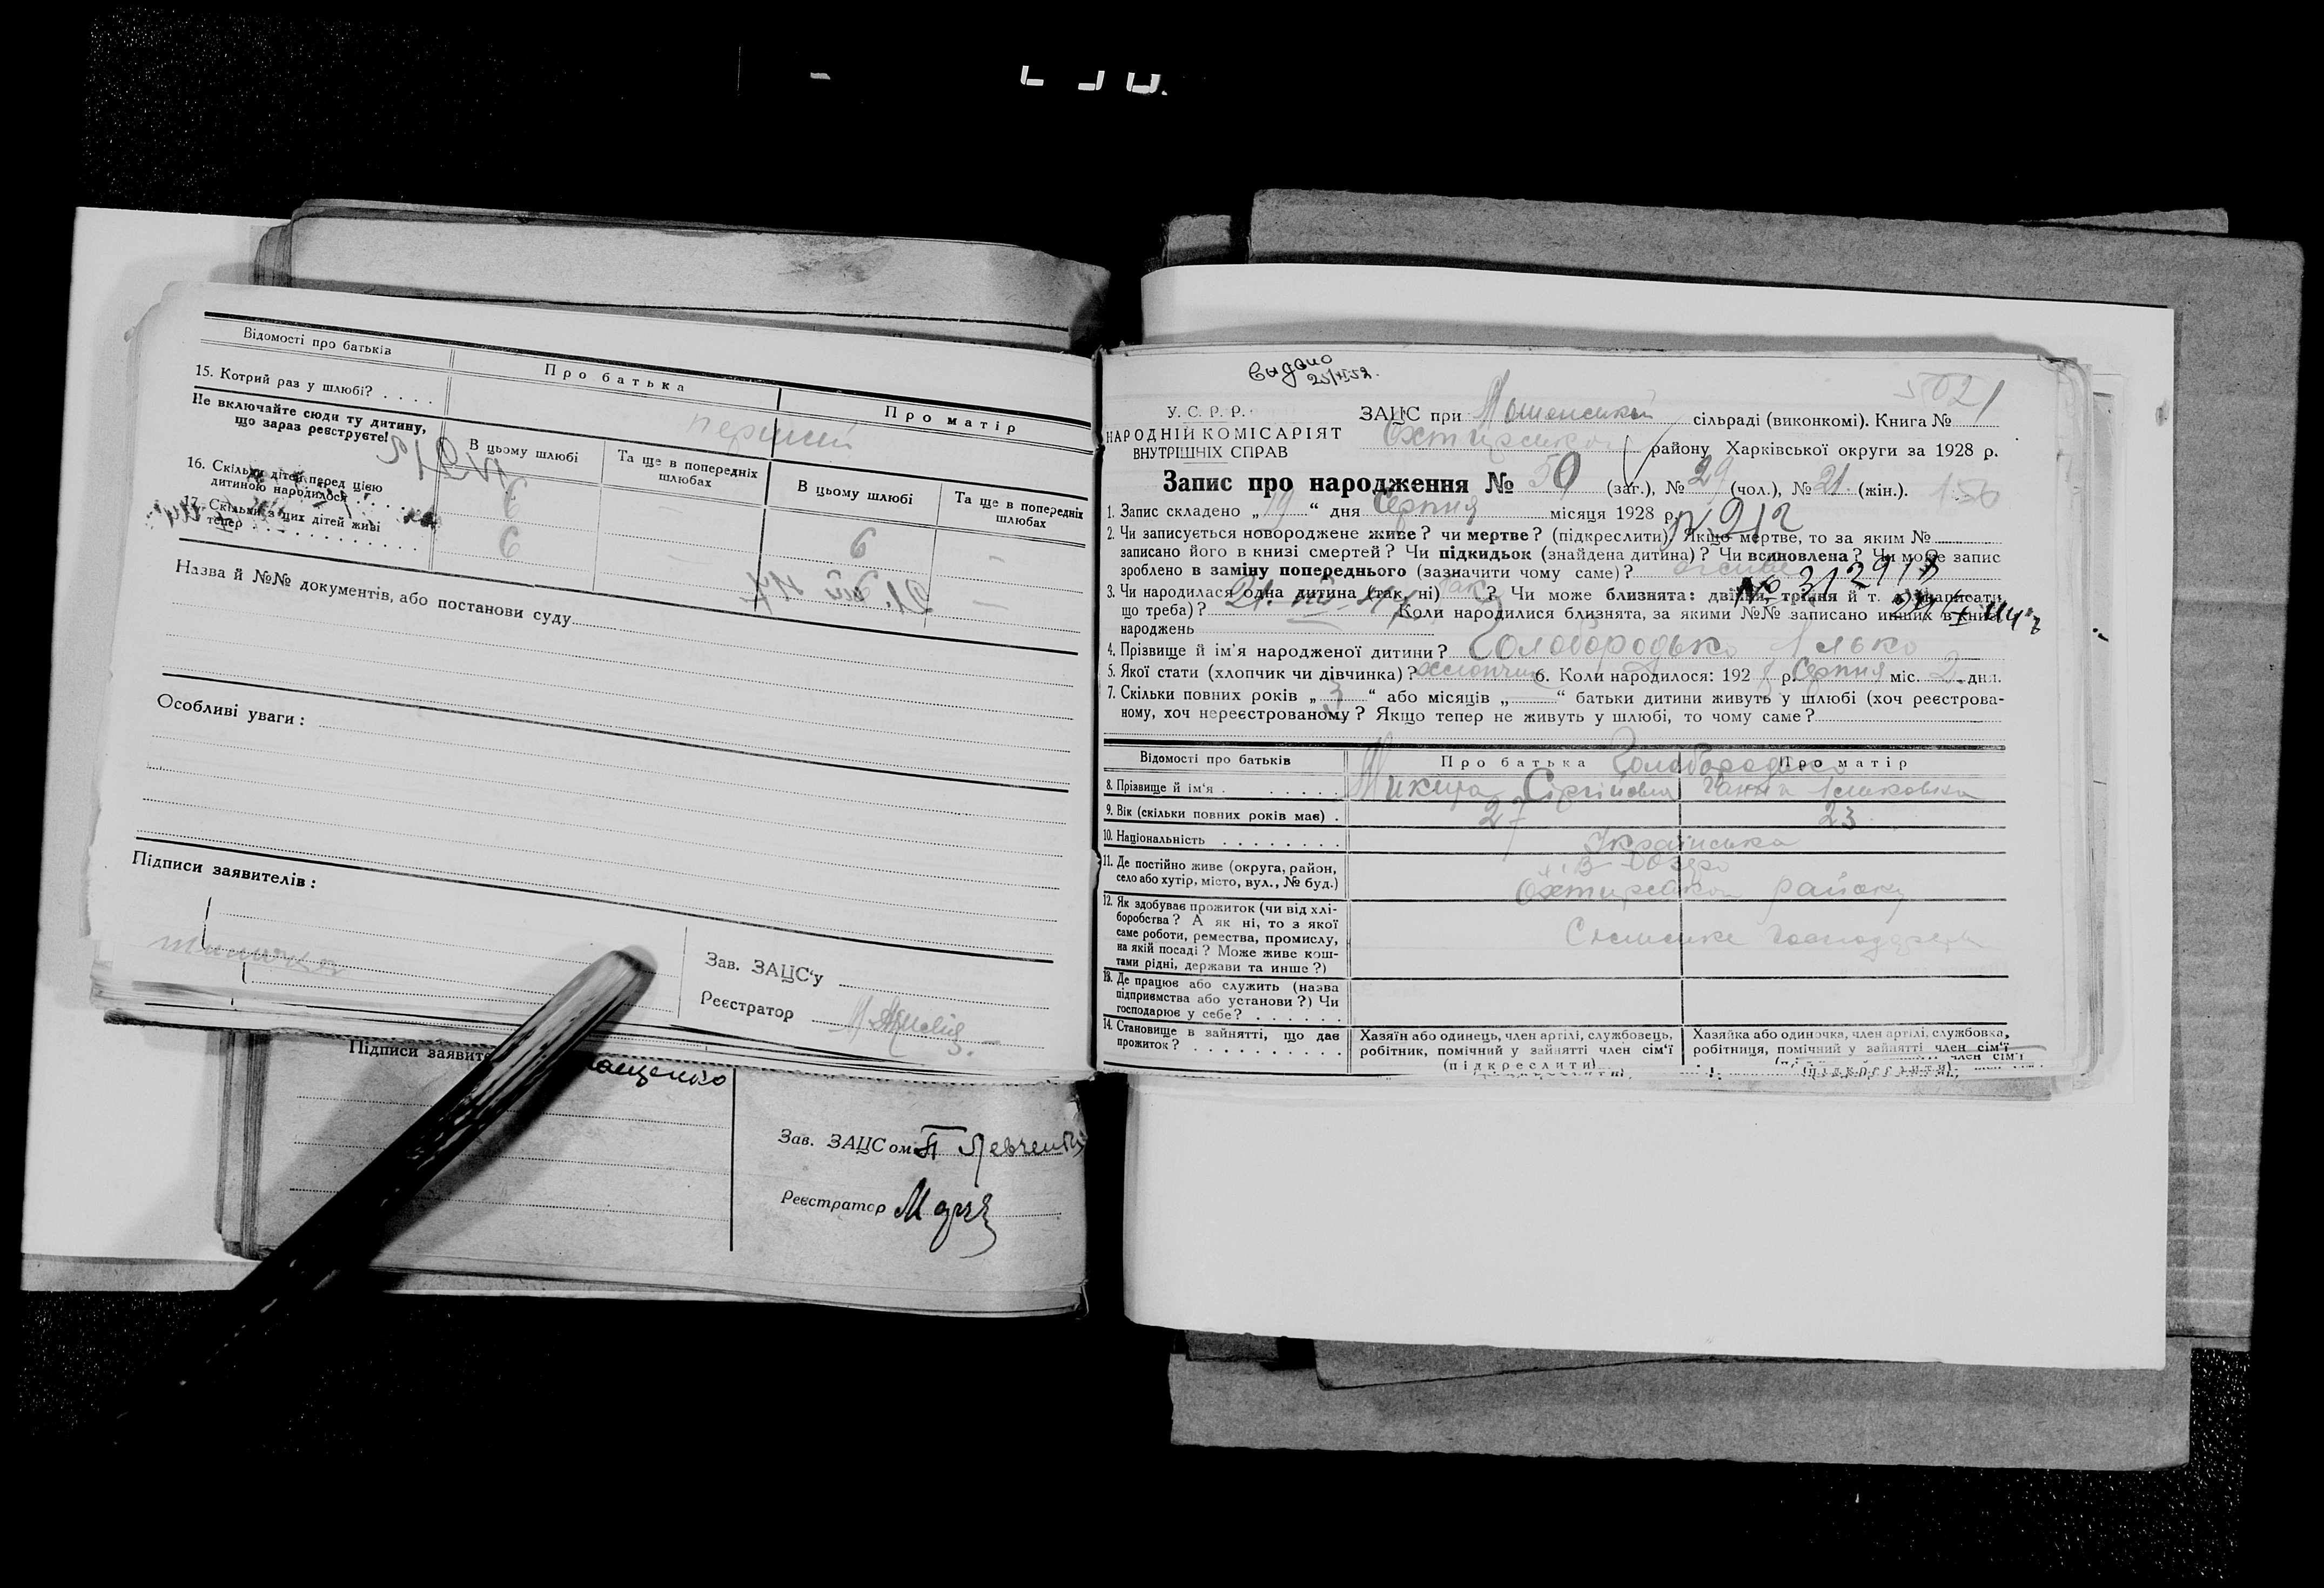 Відомості про батьків
Про батька
Про матір
15. Котрий раз у шлюбі? . . . .
перший
Не включайте сюди ту дитину,
що зараз реєструєте!
В цьому шлюбі
Та ще в попередніх
шлюбах
В цьому шлюбі
Та ще в попередніх
шлюбах
16. Скільки дітей перед цією
дитиною народилося
17. Скільки з цих дітей живі
тепер . . . . . . . . . . . .
6
Назва й №№ документів, або постанови суду
Особливі уваги:
Підписи заявителів:
Зав. ЗАЦС'у
Реєстратор
Підписи заявите
ащенко
Зав. ЗАЦСом П Левченко
Реєстратор
выдано
25/VI 52.
5021
У. С. Р. Р.
НАРОДНІЙ КОМІСАРІЯТ
ВНУТРІШНІХ СПРАВ
ЗАЦС при сільраді (виконкомі). Книга №
Охтирського району Харківської округи за 1928 р.
Запис про народження № 50 (заг.), № 29 (чол.), № 21 (жін.). 150
1. Запис складено „19“ дня Серпня місяця 1928 р.
N 212
2. Чи записується новороджене живе? чи мертве? (підкреслити). Якщо мертве, то за яким №
записано його в книзі смертей? Чи підкидьок (знайдена дитина)? Чи всиновлена? Чи може запис
зроблено в заміну попереднього (зазначити чому саме)? живе
№ 312918
3. Чи народилася одна дитина (так, ні) так? Чи може близнята: двійня, трійня й т. д. (написати
що треба)? Коли народилися близнята, за якими №№ записано инших в книзі
народжень
4. Прізвище й ім'я народженої дитини? Голобородько Ілько
5. Якої стати (хлопчик чи дівчинка)? хлопчик 6. Коли народилося: 1928 р. Серпня міс. 2 дня.
7. Скільки повних років „3“ або місяців „ “ батьки дитини живуть у шлюбі (хоч реєстрова-
ному, хоч нереєстрованому? Якщо тепер не живуть у шлюбі, то чому саме?
Відомості про батьків
Про батька
Про матір
Голобородько
8. Прізвище й ім'я . . . . . . Микита Сергійович Ганна
9. Вік (скільки повних років має) . 27 23
10. Національність . . . . . . . . Українська
11. Де постійно живе (округа, район,
село або хутір, місто, вул., № буд.)
Озеро
Охтирського району
12. Як здобуває прожиток (чи від хлі-
боробства? А як ні, то з якої
саме роботи, ремества, промислу,
на якій посаді? Може живе кош-
тами рідні, держави та инше?)
Сільське
13. Де працює або служить (назва
підприємства або установи?) Чи
господарює у себе? . . . . . .
14. Становище в зайнятті, що дає
прожиток? . . . . . . . . . .
Хазяїн або одинець, член артілі, службовець,
робітник, помічний у зайнятті член сім'ї
(підкреслити)
Хазяйка або одиночка, член артілі, службовка,
робітниця, помічний у зайнятті член сім'ї
(підкреслити)